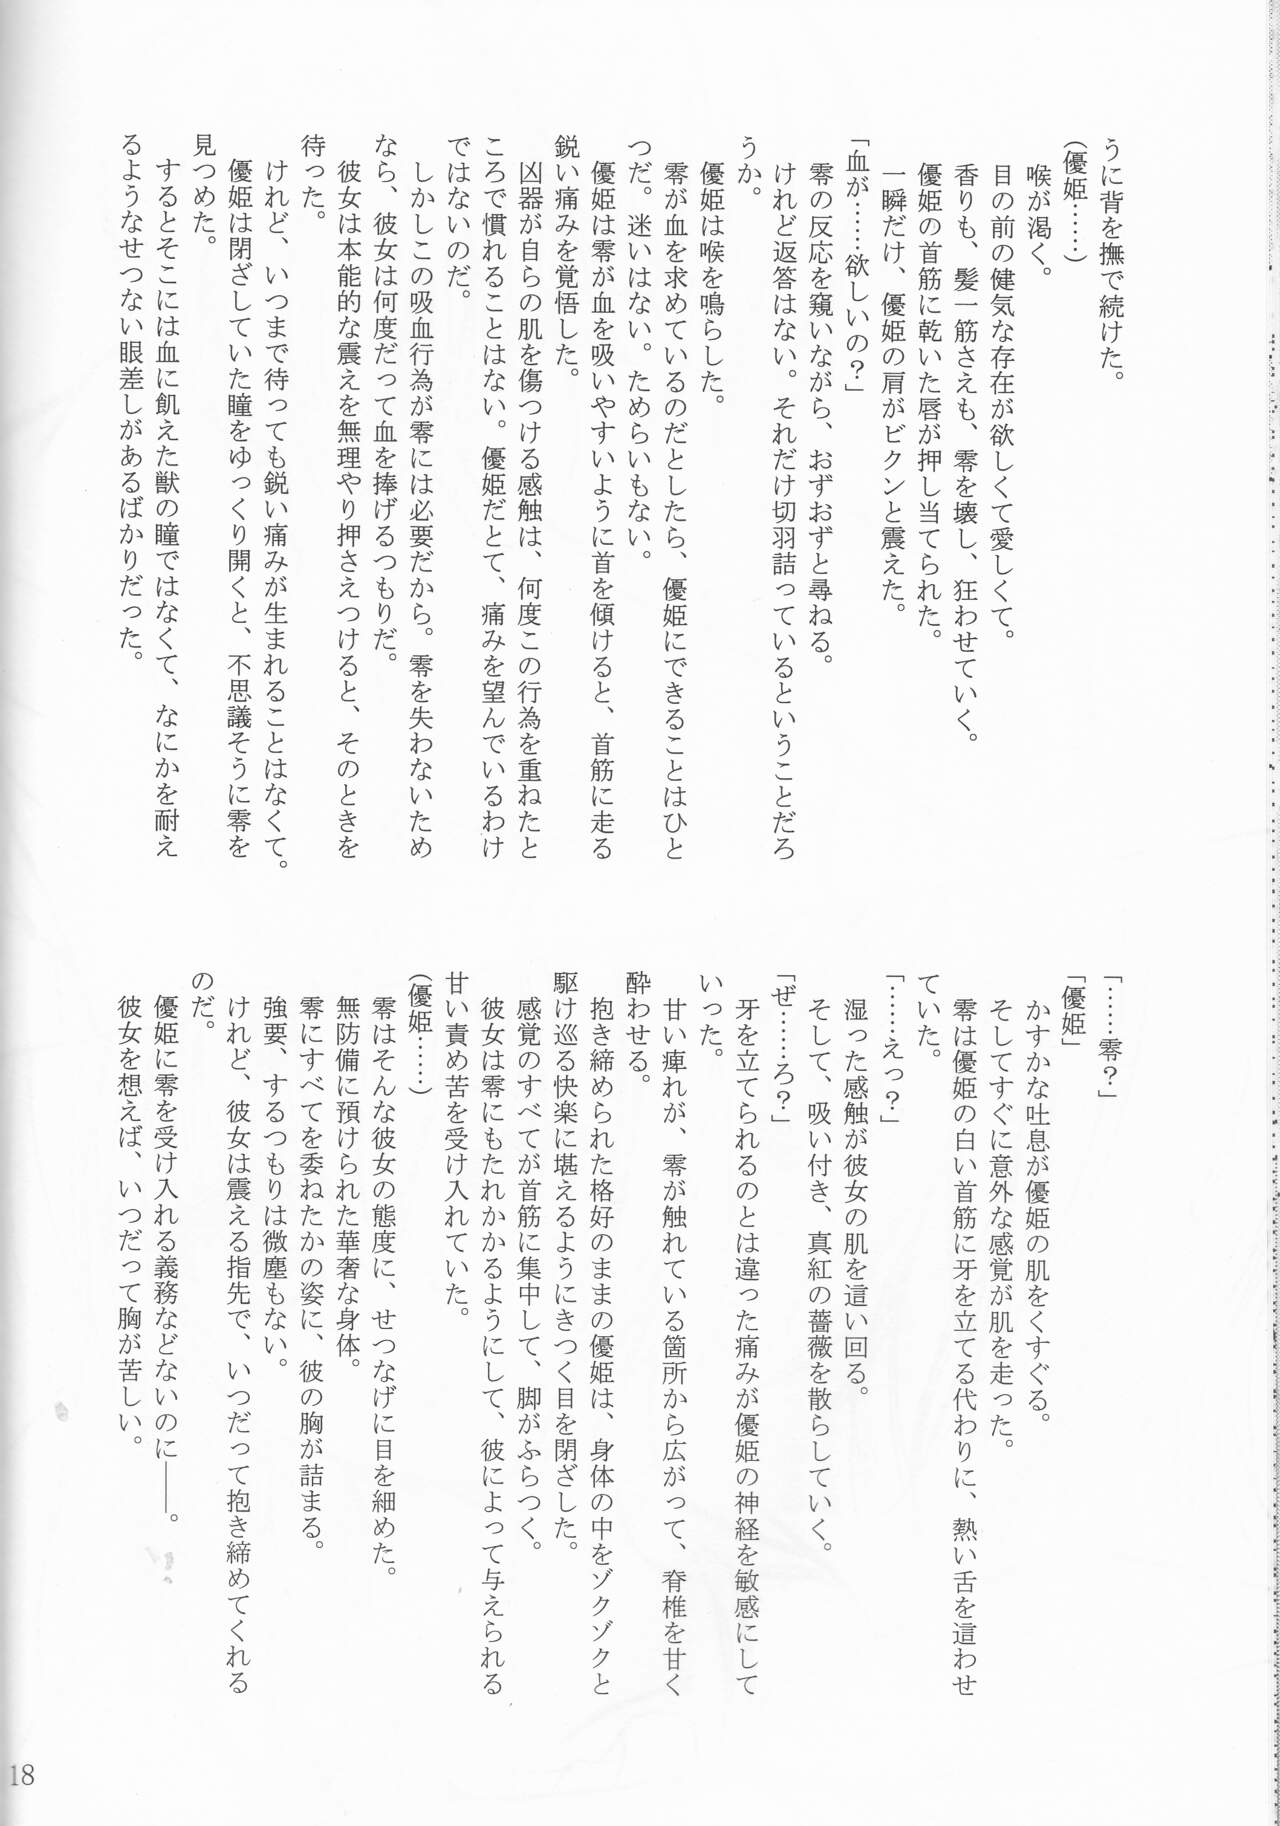 うに背を撫で続けた。
(優姫……)
喉が渇く。
目の前の健気な存在が欲しくて愛しくて。
香りも、髪一筋さえも、零を壊し、狂わせていく。
優姫の首筋に乾いた唇が押し当てられた。
一瞬だけ、優姫の肩がビクンと震えた。
「血が……欲しいの？」
零の反応を窺いながら、おずおずと尋ねる。
けれど返答はない。それだけ切羽詰っているということだろ
うか。
優姫は喉を鳴らした。
零が血を求めているのだとしたら、優姫にできることはひと
つだ。迷いはない。ためらいもない。
優姫は零が血を吸いやすいように首を傾けると、首筋に走る
鋭い痛みを覚悟した。
凶器が自らの肌を傷つける感触は、何度この行為を重ねたと
ころで慣れることはない。優姫だとて、痛みを望んでいるわけ
ではないのだ。
しかしこの吸血行為が零には必要だから。零を失わないため
なら、彼女は何度だって血を捧げるつもりだ。
彼女は本能的な震えを無理やり押さえつけると、そのときを
待った。
けれど、いつまで待っても鋭い痛みが生まれることはなくて。
優姫は閉ざしていた瞳をゆっくり開くと、不思議そうに零を
見つめた。
するとそこには血に飢えた獣の瞳ではなくて、なにかを耐え
るようなせつない眼差しがあるばかりだった。
「……零？」
「優姫」
かすかな吐息が優姫の肌をくすぐる。
そしてすぐに意外な感覚が肌を走った。
零は優姫の白い首筋に牙を立てる代わりに、熱い舌を這わせ
ていた。
「……えっ？」
湿った感触が彼女の肌を這い回る。
そして、吸い付き、真紅の薔薇を散らしていく。
「ぜ……ろ？」
牙を立てられるのとは違った痛みが優姫の神経を敏感にして
いった。
甘い痺れが、零が触れている箇所から広がって、脊椎を甘く
酔わせる。
抱き締められた格好のままの優姫は、身体の中をゾクゾクと
駆け巡る快楽に堪えるようにきつく目を閉ざした。
感覚のすべてが首筋に集中して、脚がふらつく。
彼女は零にもたれかかるようにして、彼によって与えられる
甘い責め苦を受け入れていた。
(優姫……)
零はそんな彼女の態度に、せつなげに目を細めた。
無防備に預けられた華奢な身体。
零にすべてを委ねたかの姿に、彼の胸が詰まる。
強要、するつもりは微塵もない。
けれど、彼女は震える指先で、いつだって抱き締めてくれる
のだ。
優姫に零を受け入れる義務などないのに――。
彼女を想えば、いつだって胸が苦しい。
18